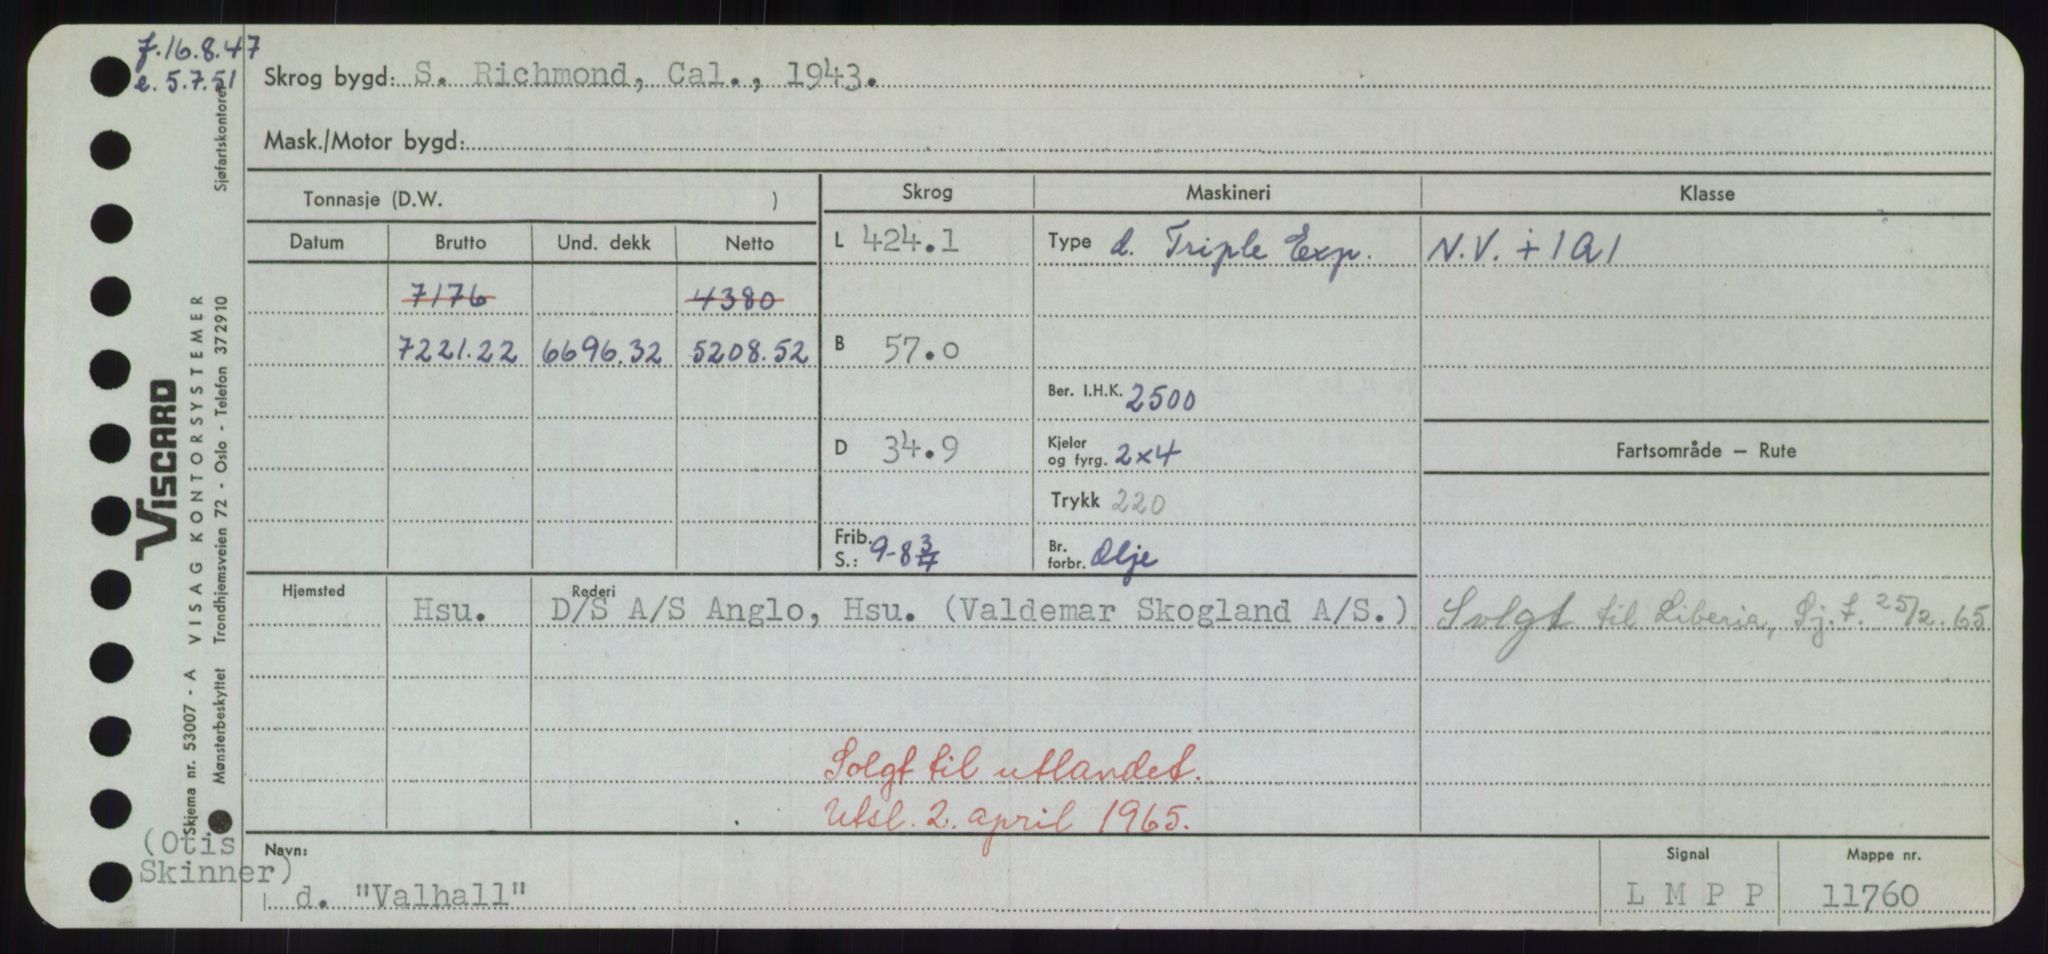 f. 16.8.47
e. 5.7.51
Skrog bygd: S. Richmond, Cal., 1943.
Mask./Motor bygd:
Tonnasje (D.W. )
Skrog
Maskineri
Klasse
Datum
Brutto
Und. dekk
Netto
L 424.1
Type d. Triple Exp.
N.V. + 1A1
7176
4380
7221.22 6696.32 5208.52
B 57.0
Ber. I.H.K. 2500
D 34.9
Kjeler
og fyrg. 2x4
Fartsområde – Rute
Trykk 220
Frib.
S.: 9-8 3/4
Br.
forbr. Olje
Hjemsted
Rederi
Hsu. D/S A/S Anglo, Hsu. (Valdemar Skogland A/S.)
Solgt til Liberia, Sj.f. 25/2.65
Solgt til utlandet.
Utsl. 2. april 1965.
(Otis
Skinner)
Navn:
d. "Valhall"
Signal
L M P P
Mappe nr.
11760
VISCARD
Skjema nr. 53007 - A VISAG KONTORSYSTEMER
Mønsterbeskyttet Trondhjemsveien 72 - Oslo - Telefon 372910 Sjøfartskontoret